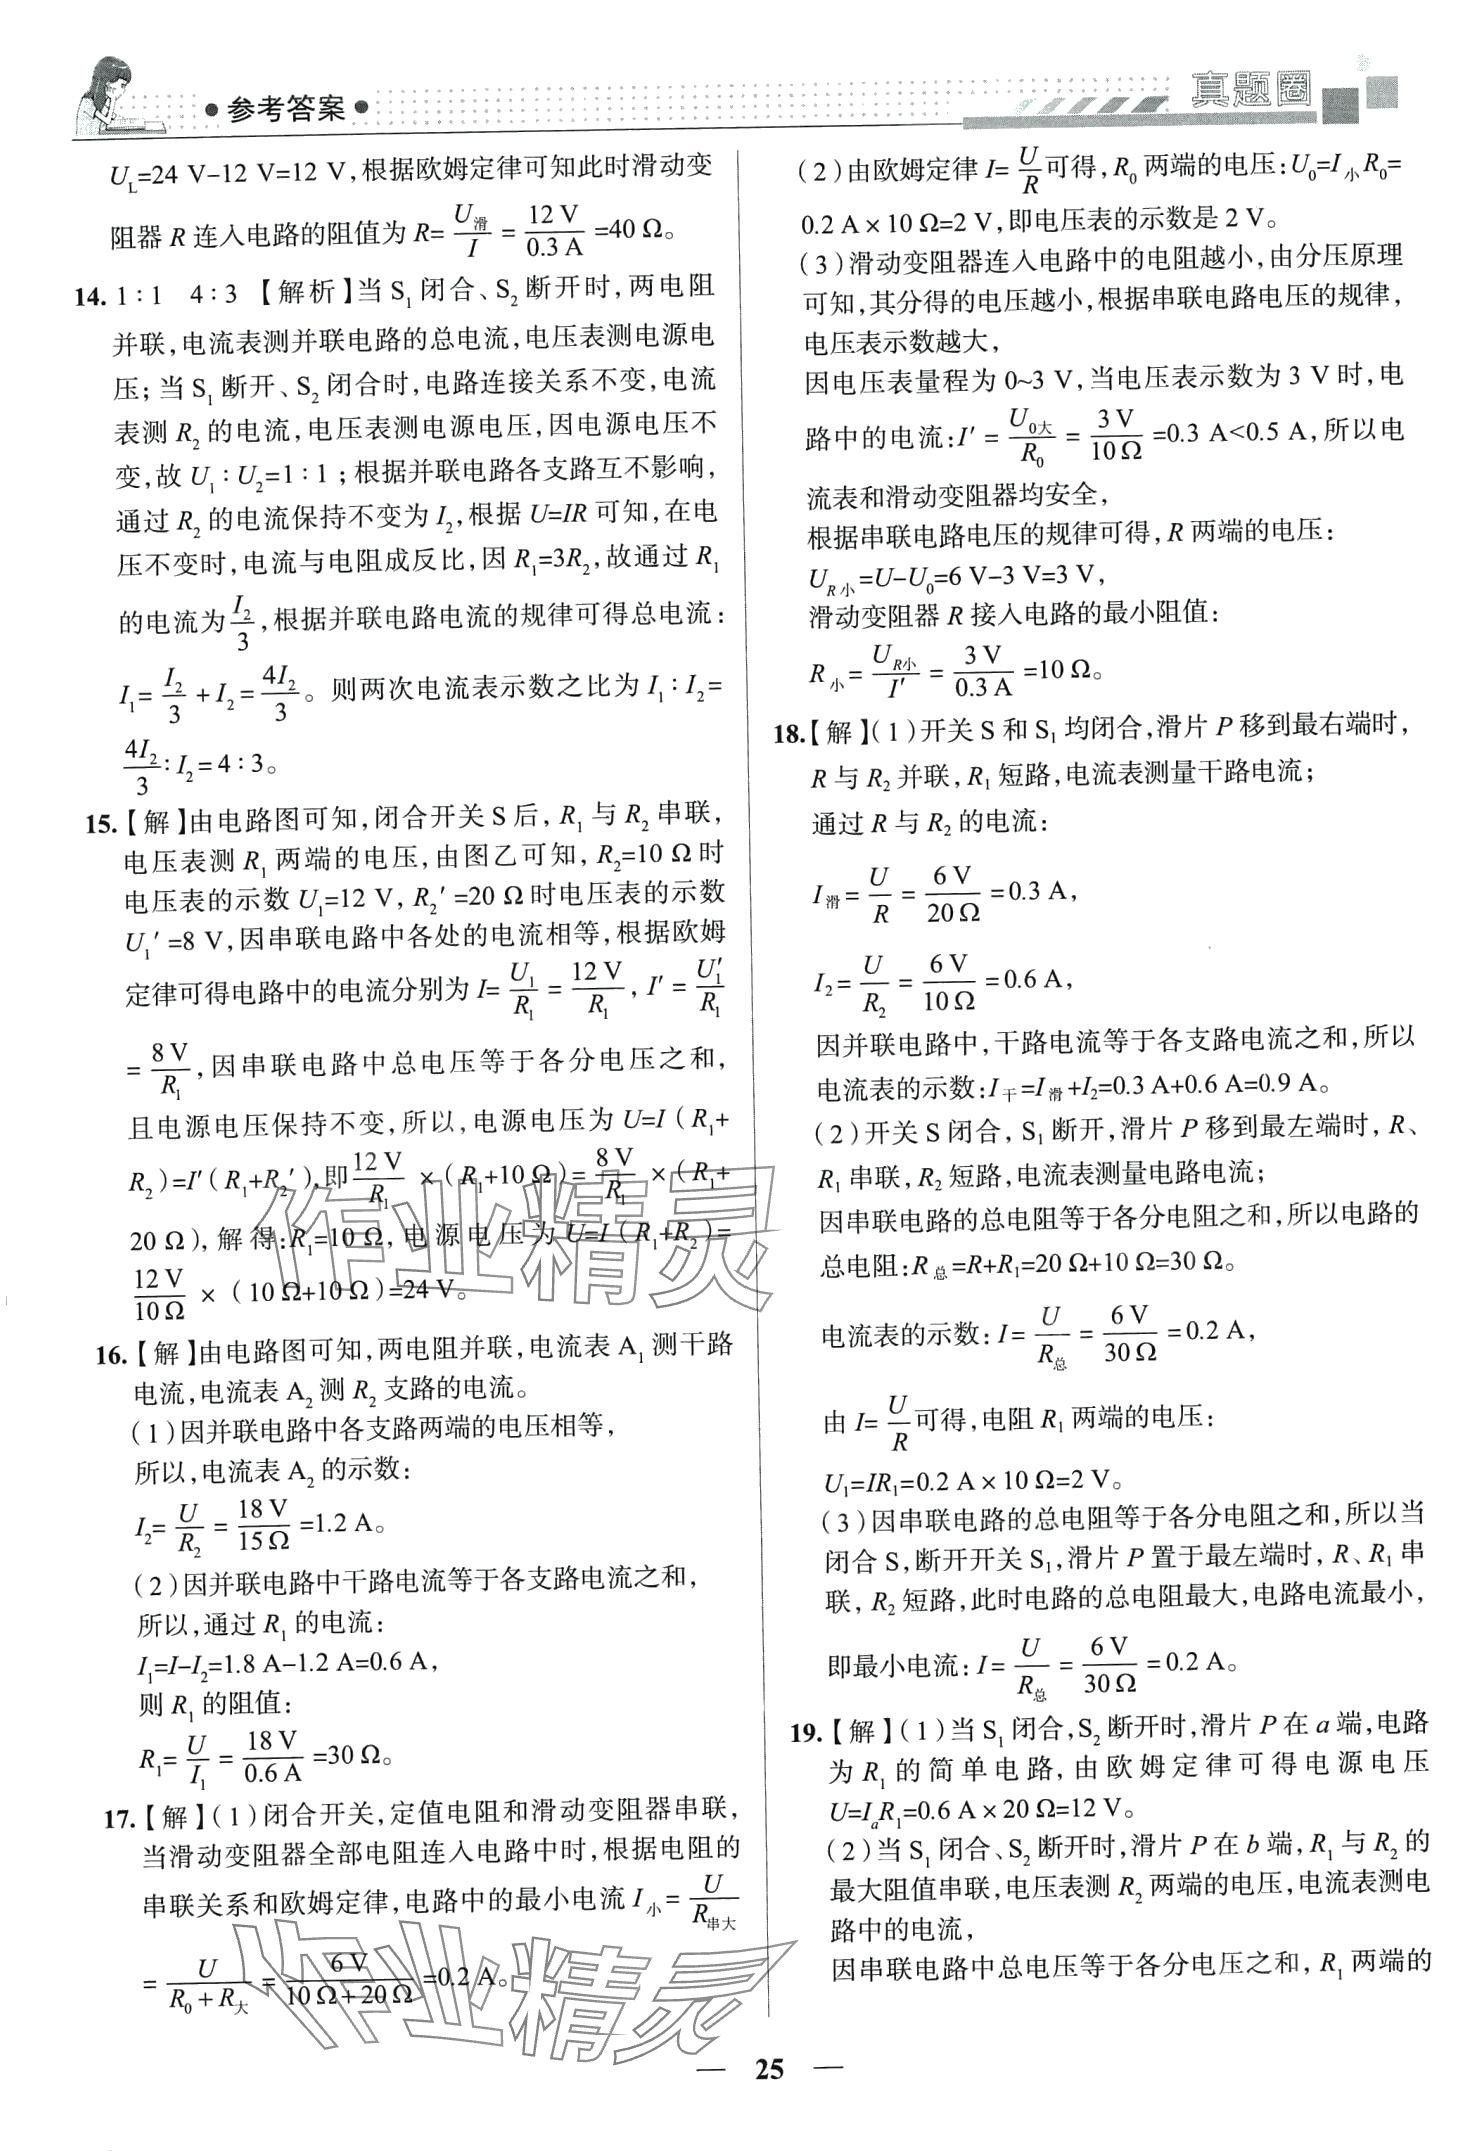 参考答案
真题圈
U_L=24 V-12 V=12 V,根据欧姆定律可知此时滑动变
阻器 R 连入电路的阻值为 R=U滑/I=12 V/0.3 A=40 Ω。
14. 1∶1 4∶3 【解析】当 S₁ 闭合、S₂ 断开时,两电阻
并联,电流表测并联电路的总电流,电压表测电源电
压;当 S₁ 断开、S₂ 闭合时,电路连接关系不变,电流
表测 R₂ 的电流,电压表测电源电压,因电源电压不
变,故 U₁∶U₂=1∶1;根据并联电路各支路互不影响,
通过 R₂ 的电流保持不变为 I₂,根据 U=IR 可知,在电
压不变时,电流与电阻成反比,因 R₁=3R₂,故通过 R₁
的电流为 I₂/3,根据并联电路电流的规律可得总电流:
I₁=I₂/3+I₂=4I₂/3。则两次电流表示数之比为 I₁∶I₂=
4I₂/3∶I₂=4∶3。
15.【解】由电路图可知,闭合开关 S 后, R₁ 与 R₂ 串联,
电压表测 R₁ 两端的电压,由图乙可知, R₂=10 Ω 时
电压表的示数 U₁=12 V, R₂′=20 Ω 时电压表的示数
U₁′=8 V,因串联电路中各处的电流相等,根据欧姆
定律可得电路中的电流分别为 I=U₁/R₁=12 V/R₁, I′=U₁′/R₁
=8 V/R₁,因串联电路中总电压等于各分电压之和,
且电源电压保持不变,所以,电源电压为 U=I(R₁+
R₂)=I′(R₁+R₂′),即12 V/R₁×(R₁+10 Ω)=8 V/R₁×(R₁+
20 Ω),解得:R₁=10 Ω,电源电压为 U=I(R₁+R₂)=
12 V/10 Ω×(10 Ω+10 Ω)=24 V。
16.【解】由电路图可知,两电阻并联,电流表 A₁ 测干路
电流,电流表 A₂ 测 R₂ 支路的电流。
(1)因并联电路中各支路两端的电压相等,
所以,电流表 A₂ 的示数:
I₂=U/R₂=18 V/15 Ω=1.2 A。
(2)因并联电路中干路电流等于各支路电流之和,
所以,通过 R₁ 的电流:
I₁=I-I₂=1.8 A-1.2 A=0.6 A,
则 R₁ 的阻值:
R₁=U/I₁=18 V/0.6 A=30 Ω。
17.【解】(1)闭合开关,定值电阻和滑动变阻器串联,
当滑动变阻器全部电阻连入电路中时,根据电阻的
串联关系和欧姆定律,电路中的最小电流 I小=U/R串大
=U/(R₀+R大)=6 V/(10 Ω+20 Ω)=0.2 A。
(2)由欧姆定律 I=U/R可得, R₀ 两端的电压:U₀=I小R₀=
0.2 A×10 Ω=2 V,即电压表的示数是 2 V。
(3)滑动变阻器连入电路中的电阻越小,由分压原理
可知,其分得的电压越小,根据串联电路电压的规律,
电压表示数越大,
因电压表量程为 0~3 V,当电压表示数为 3 V 时,电
路中的电流:I′=U₀大/R₀=3 V/10 Ω=0.3 A<0.5 A,所以电
流表和滑动变阻器均安全,
根据串联电路电压的规律可得, R 两端的电压:
U_R小=U-U₀=6 V-3 V=3 V,
滑动变阻器 R 接入电路的最小阻值:
R小=U_R小/I′=3 V/0.3 A=10 Ω。
18.【解】(1)开关 S 和 S₁ 均闭合,滑片 P 移到最右端时,
R 与 R₂ 并联, R₁ 短路,电流表测量干路电流;
通过 R 与 R₂ 的电流:
I滑=U/R=6 V/20 Ω=0.3 A,
I₂=U/R₂=6 V/10 Ω=0.6 A,
因并联电路中,干路电流等于各支路电流之和,所以
电流表的示数:I干=I滑+I₂=0.3 A+0.6 A=0.9 A。
(2)开关 S 闭合, S₁ 断开,滑片 P 移到最左端时, R、
R₁ 串联, R₂ 短路,电流表测量电路电流;
因串联电路的总电阻等于各分电阻之和,所以电路的
总电阻:R总=R+R₁=20 Ω+10 Ω=30 Ω。
电流表的示数:I=U/R总=6 V/30 Ω=0.2 A,
由 I=U/R可得,电阻 R₁ 两端的电压:
U₁=IR₁=0.2 A×10 Ω=2 V。
(3)因串联电路的总电阻等于各分电阻之和,所以当
闭合 S,断开开关 S₁,滑片 P 置于最左端时, R、R₁ 串
联, R₂ 短路,此时电路的总电阻最大,电路电流最小,
即最小电流:I=U/R总=6 V/30 Ω=0.2 A。
19.【解】(1)当 S₁ 闭合,S₂ 断开时,滑片 P 在 a 端,电路
为 R₁ 的简单电路,由欧姆定律可得电源电压
U=IₐR₁=0.6 A×20 Ω=12 V。
(2)当 S₁ 闭合、S₂ 断开时,滑片 P 在 b 端, R₁ 与 R₂ 的
最大阻值串联,电压表测 R₂ 两端的电压,电流表测电
路中的电流,
因串联电路中总电压等于各分电压之和, R₁ 两端的
作业精灵
作业精灵
— 25 —